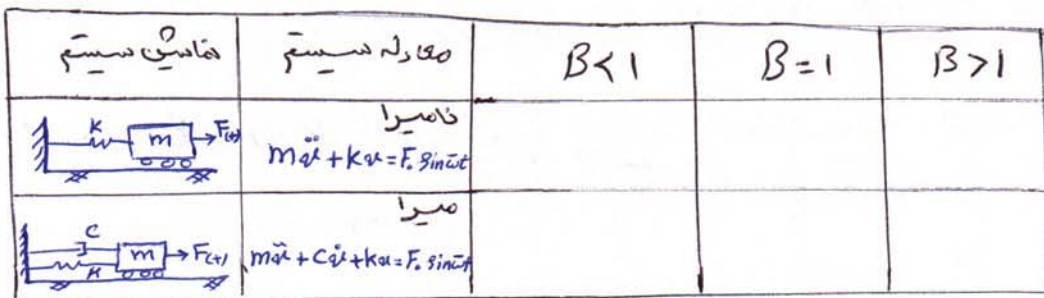 نمایش سیستم
معادله سیستم
B<1
B=1
B>1
K
m
F(t)
نامیرا
mü + ku = F. Sin ω̄t
C
m
K
F(t)
میرا
mü + Cu̇ + ku = F. Sin ω̄t